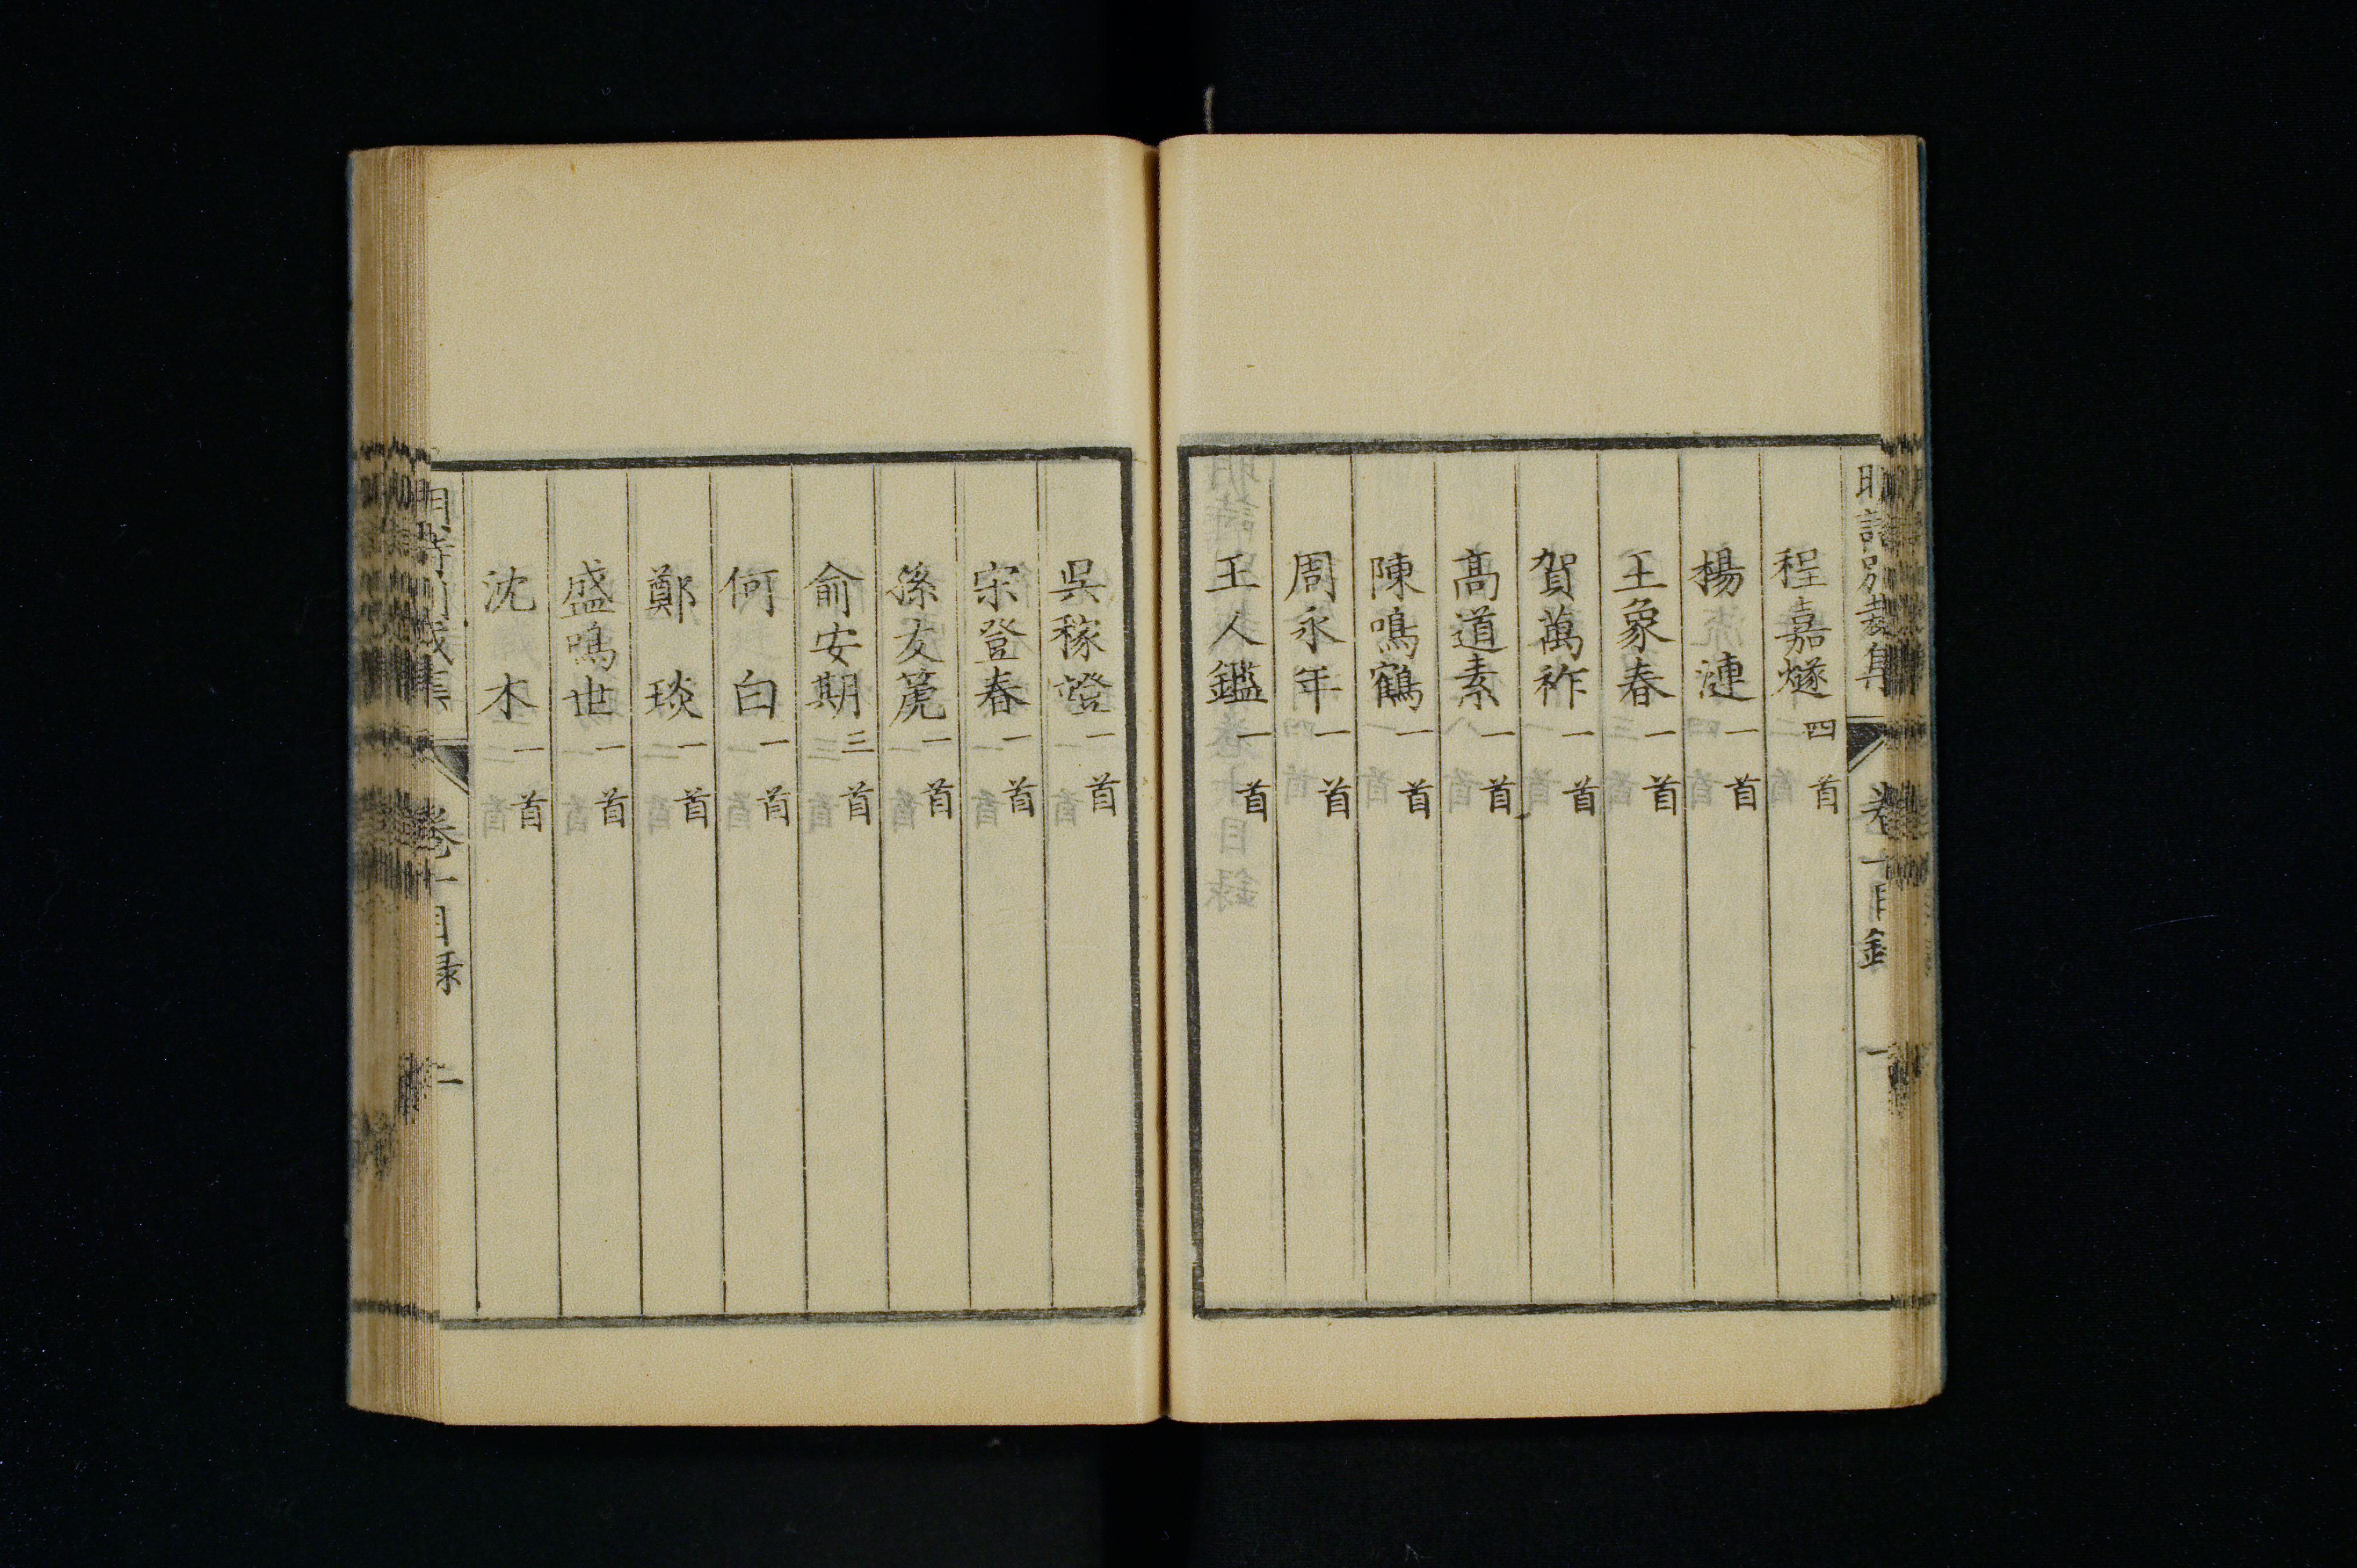 明詩別裁集 卷十目錄 一
程嘉燧 四首
楊漣 一首
王象春 一首
賀萬祚 一首
高道素 一首
陳鳴鶴 一首
周永年 一首
王人鑑 一首
吳稼𥲤 一首
宋登春 一首
孫友箎 一首
俞安期 三首
何白 一首
鄭琰 一首
盛鳴世 一首
沈木 一首